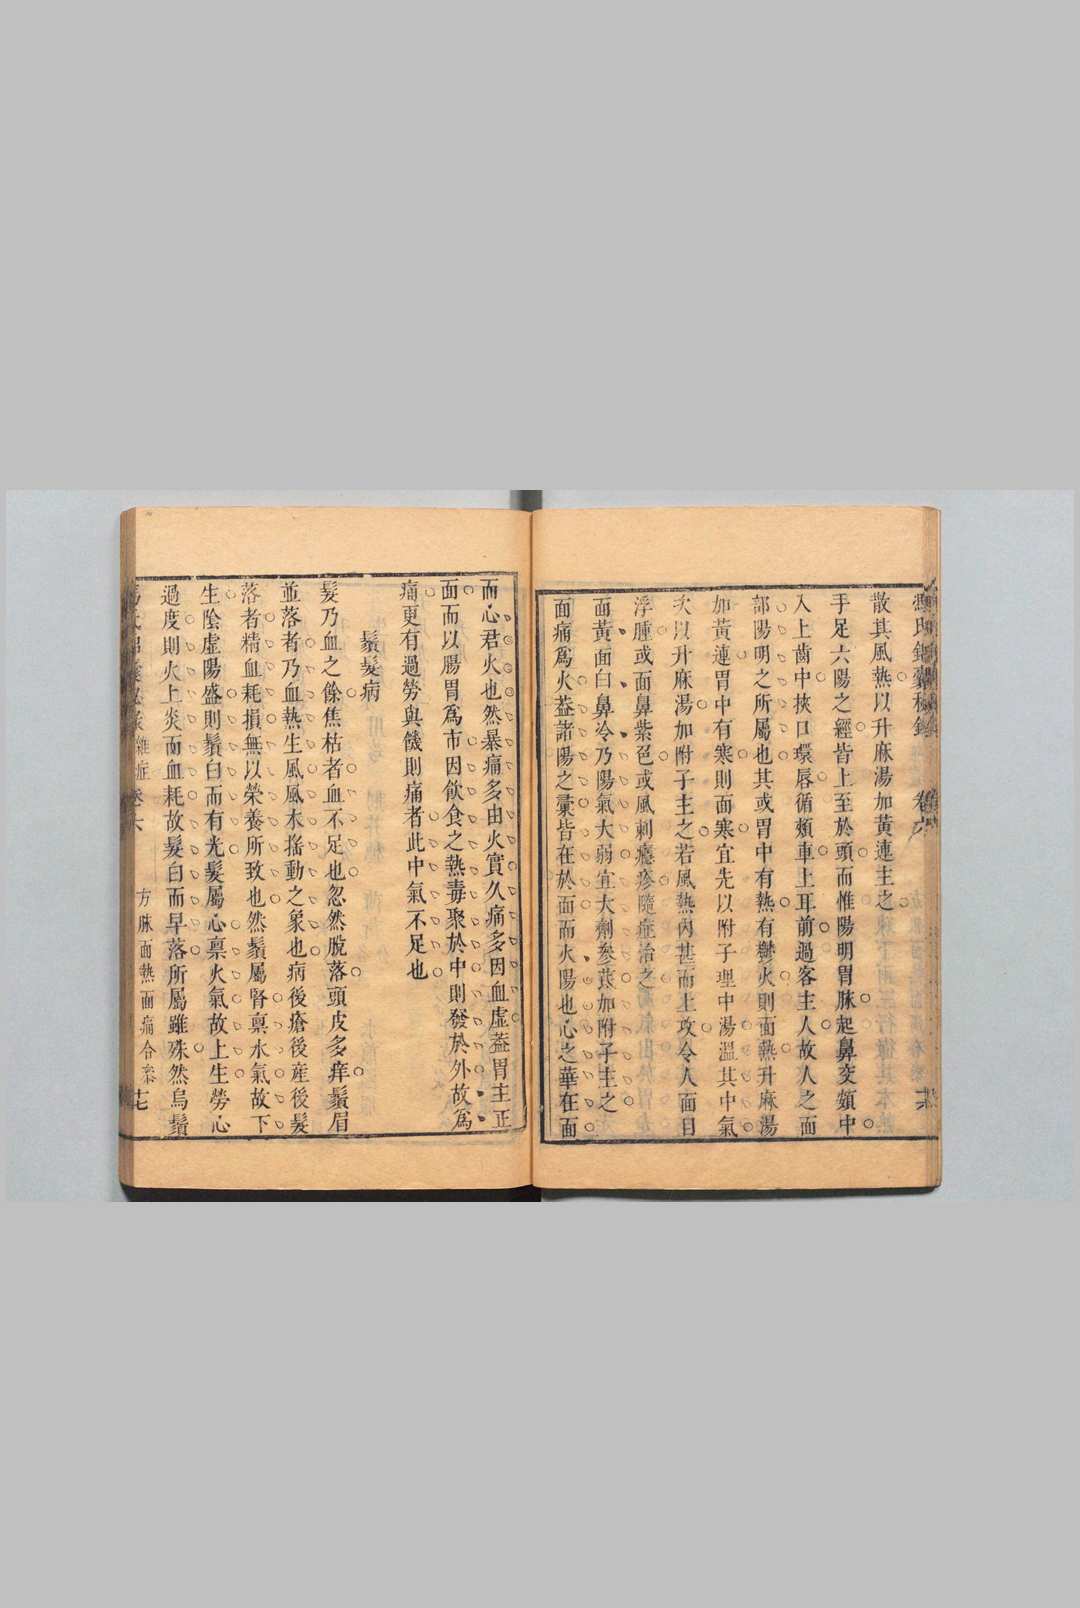 馮氏錦囊秘錄 卷六
散其風熱以升麻湯加黃連主之
手足六陽之經皆上至於頭而惟陽明胃脉起鼻交頞中
入上齒中挾口環唇循頰車上耳前過客主人故人之面
部陽明之所屬也其或胃中有熱有鬱火則面熱升麻湯
加黃連胃中有寒則面寒宜先以附子理中湯溫其中氣
次以升麻湯加附子主之若風熱內甚而上攻令人面目
浮腫或面鼻紫色或風刺癮疹隨症治之
面黃面白鼻冷乃陽氣大弱宜大劑參芪加附子主之
面痛為火葢諸陽之會皆在於面而火陽也心之華在面
而心君火也然暴痛多由火實久痛多因血虛葢胃主正
面而以腸胃為市因飲食之熱毒聚於中則發於外故為
痛更有過勞與饑則痛者此中氣不足也
鬚髮病
髮乃血之餘焦枯者血不足也忽然脫落頭皮多痒鬚眉
並落者乃血熱生風風木搖動之象也病後瘡後産後髮
落者精血耗損無以榮養所致也然鬚屬腎禀水氣故下
生陰虛陽盛則鬚白而有光髮屬心禀火氣故上生勞心
過度則火上炎而血耗故髮白而早落所屬雖殊然烏鬚
雜症卷六 方脉面熱面痛合叅 十七